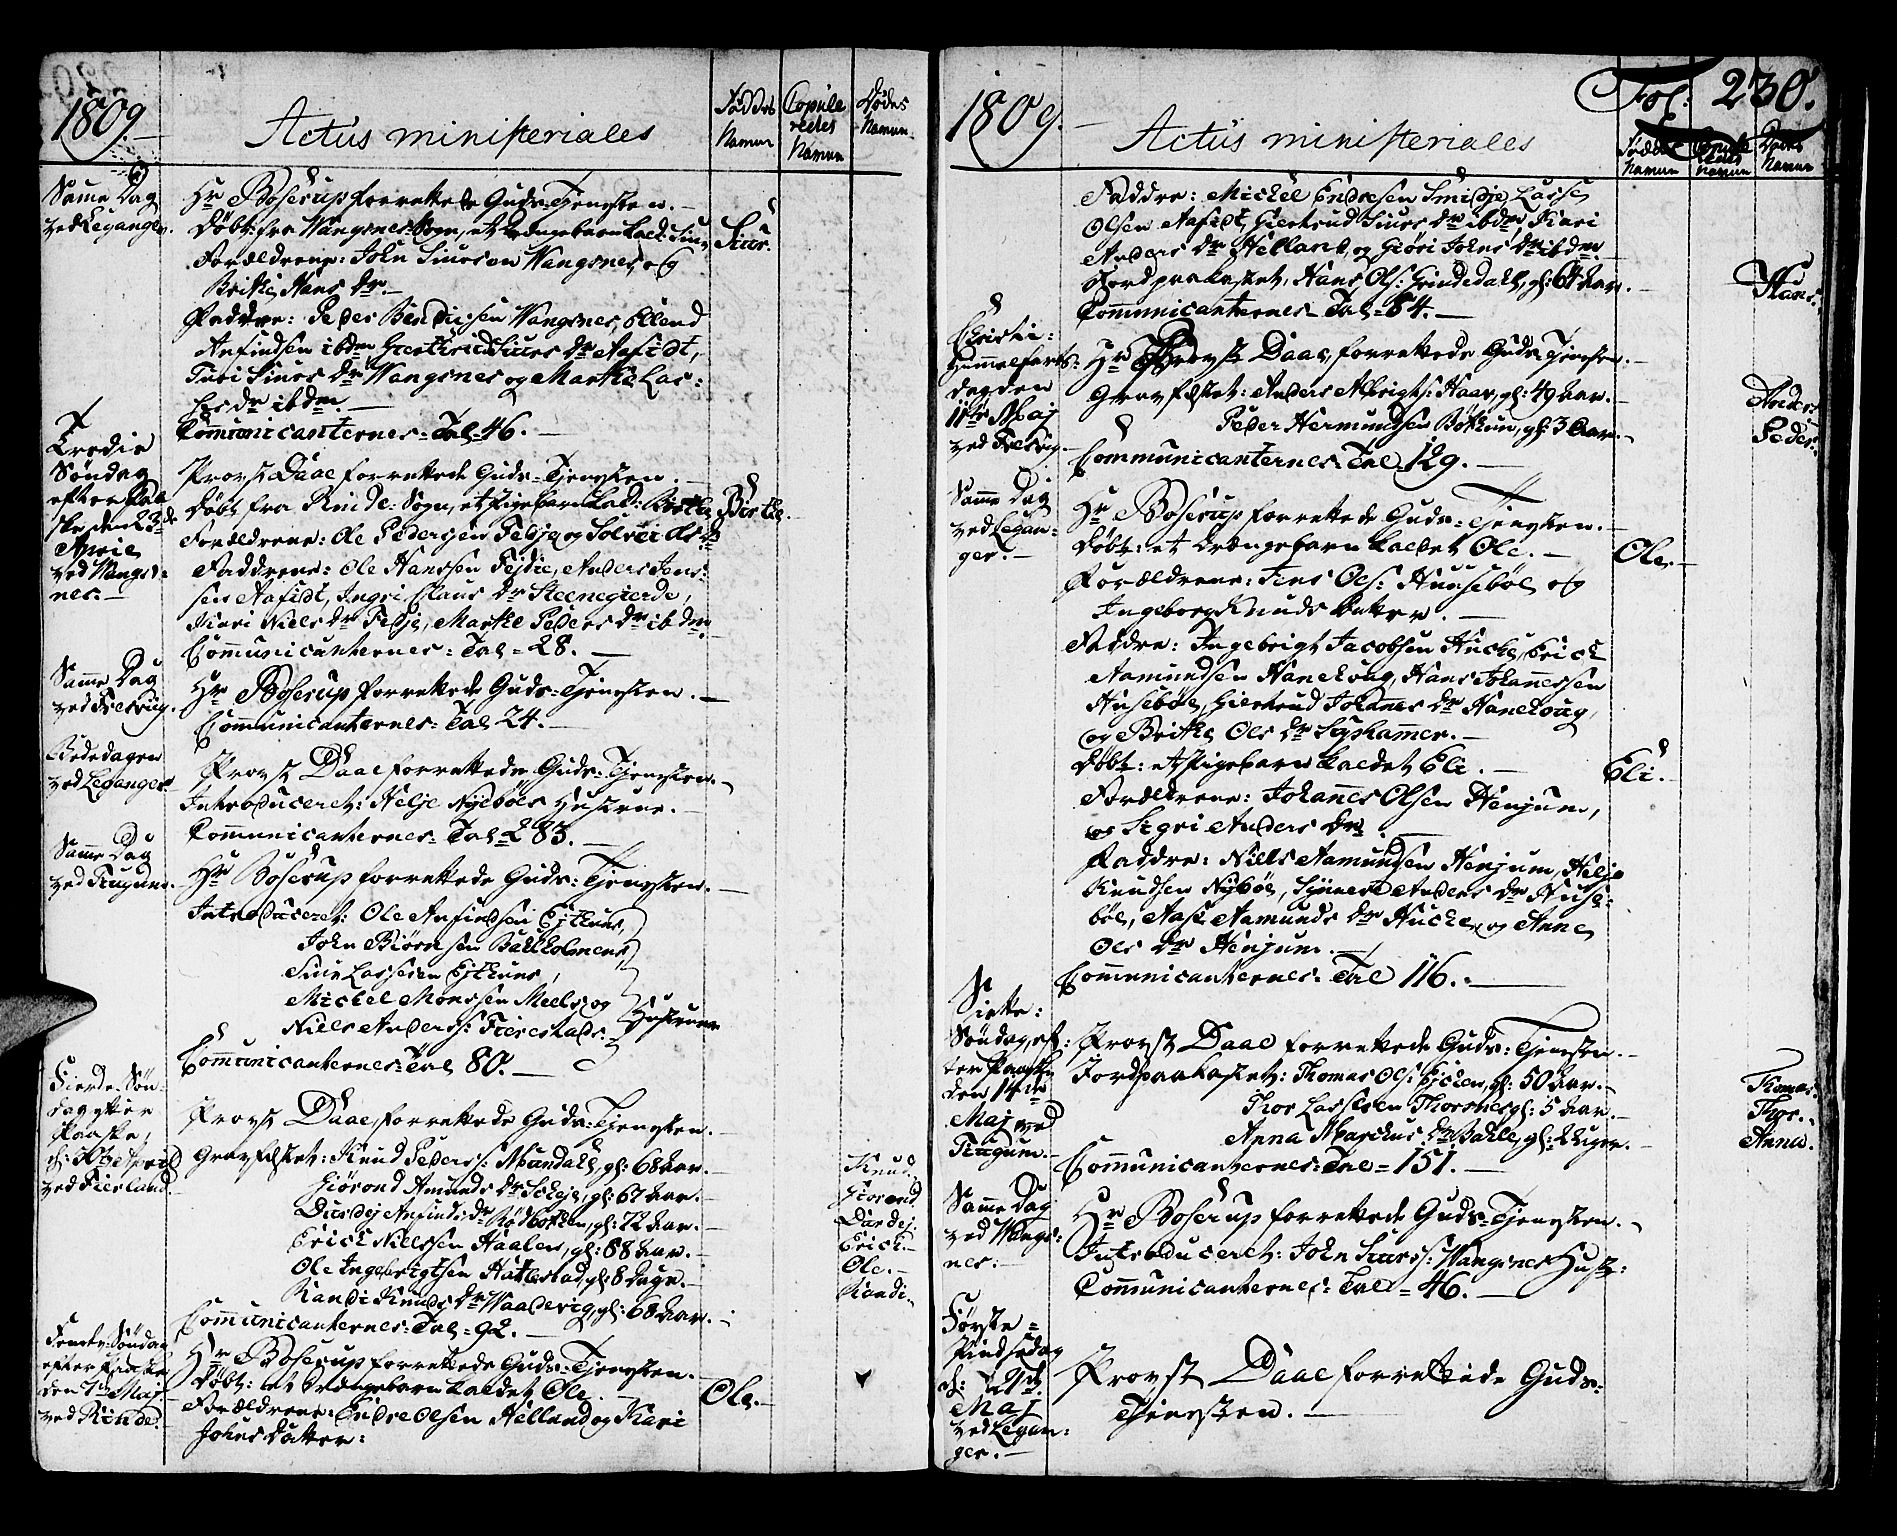 1809.
Actus ministeriales
Födde Navne
Copuleredes Navne
Dödes Navne
Samme Dag
ved Leganger.
Hr Boserup forrettede Guds-Tjenesten.
Döbt fra Wangsnes Sogn, et Drengebarn kald: Siur,
Siur.
Forældrene: John Siursen Wangsnes, og
Brithe Hans Dr.
Faddre: Peder Bendixsen Wangsnes, Ellend
Anfindsen ibdm Giertrud Siurs Dr Aafedt,
Turi Siurs Dr Wangsnes og Marthe Las-
ses Dr ibdm.
Communicanternes Tal 46.
Tredie
Söndag
efter Paa-
ske den 23de
April
ved Wangs-
nes.
Provst Daae forrettede Guds-Tjenesten.
Döbt fra Rinde-Sogn, et Pigebarn kald: Birthe
Birthe.
Forældrene: Ole Pedersen Feidje og Solvi Ols Dr
Faddrene: Ole Hanssen Feidie, Anders Jens-
sen Aafedt, Ingri Claus Dr Steenegierde,
Kari Niels Dr Feidje, Marthe Peders Dr ibdm
Communicanternes-Tal-28.
Samme Dag
ved Fresvig.
Hr Boserup forrettede Guds-Tjenesten.
Communicanternes-Tal 24.
Bededagen
ved Leganger
Provst Daae forrettede Guds-Tjenesten.
Introduceret: Helje Nyböes Hustrue.
Communicanternes-Tal 283.
Samme Dag
ved Tiugum.
Hr Boserup forrettede Guds-Tjenesten.
Introduceret: Ole Anfindsen Ejtuns,
John Biörnsen Balholmens
Siur Lassesen Ejtuns,
Michel Monssen Meels og
Niels Anderss: Fierestads
Hustruer
Communicanternes Tal 80.
Fierde Sön-
dag efter
Paaske,
d: 30te April
ved Fierland.
Provst Daae forrettede Guds-Tjenesten.
Gravfæstet: Knud Peders: Mundahl, gl: 68 Aar.
Knud.
Giörond Amunds Dr Skeje, gl: 67 Aar.
Giörond.
Durdej Anfinds Dr Bödvothen, gl: 72 Aar.
Durdej.
Erick Nielssen Haalen, gl: 88 Aar.
Erick.
Ole Ingebrigtsen Hatlestad, gl: 8 Dage.
Ole.
Randi Knuds Dr Waadevig, gl: 68 Aar.
Randi.
Communicanternes-Tal-92.
Femte Söndag
efter Paaske
den 7de Maj
ved Rinde.
Hr Boserup forrettede Guds-Tjenesten.
Döbt: et Drengebarn kaldet Ole.
Ole.
Forældrene: Endre Olsen Helland og Kari
Johns datter:
1809.
Actus ministeriales
Fol: 230.
Födde Navne
Copuleredes Navne
Dödes Navne
Faddre: Michel Endresen Smidje, Lasse
Olsen Aafedt, Giertrud Siurs Dr ibdm, Kari
Anders Dr Helland, og Giöri Johns Dr ibdm
Jordpaakastet, Hans Ols: Grindedahl, gl: 64 Aar.
Hans.
Communicanternes Tal 84.
Christi-
Himmelfarts-
dag den
11te Maj
ved Fresvig
Hr Provst Daae, forrettede Guds-Tjenesten.
Gravfæstet: Anders Albrigts: Haar, gl: 49 Aar.
Anders
Peder Hermundsen Böthun, gl: 3 Aar.
Peder.
Communicanternes-Tal 129.
Samme Dag
ved Legan-
ger.
Hr Boserup forrettede Guds-Tjenesten.
Döbt: et Drengebarn kaldet Ole.
Ole.
Forældrene: Jens Ols: Huuseböe og
Ingeborg Knuds datter.
Faddre: Ingebrigt Jacobsen Hucke, Erick
Aamundsen Hanehoug, Hans Johannessen
Huseböe, Giertrud Johannes Dr Hanehoug,
og Brithe Ols Dr Lyshammer.
Döbt: et Pigebarn kaldet Eli.
Eli.
Forældrene: Johannes Olsen Henjum,
og Sigri Anders Dr.
Faddre: Niels Aamundsen Henjum, Helje
Knudsen Nyböe, Synneve Anders Dr Huse-
böe, Aase Aamunds Dr Hucke, og Anne
Ols Dr Henjum.
Communicanternes-Tal 116.
Siette-
Söndag ef-
ter Paaske
den 14de
Maj ved
Tiugum.
Provst Daae forrettede Guds-Tjenesten.
Jordpaakastet: Thomas Ols: Ejthun, gl: 50 Aar.
Thomas.
Thor Lassesen Thorsnes gl: 5 Aar.
Thor.
Anna Marchus Dr Bahle, gl: 2 Uger.
Anna.
Communicanternes-Tal-151.
Samme Dag
ved Wangs-
nes.
Hr Boserup forrettede Guds-Tjenesten.
Introduceret: John Siurs: Wangsnes Hust:
Communicanternes-Tal-46.
Förste-
Pindsedag
d: 21de
Maj
ved Legan-
ger.
Provst Daae forrettede Guds-
Tjenesten.